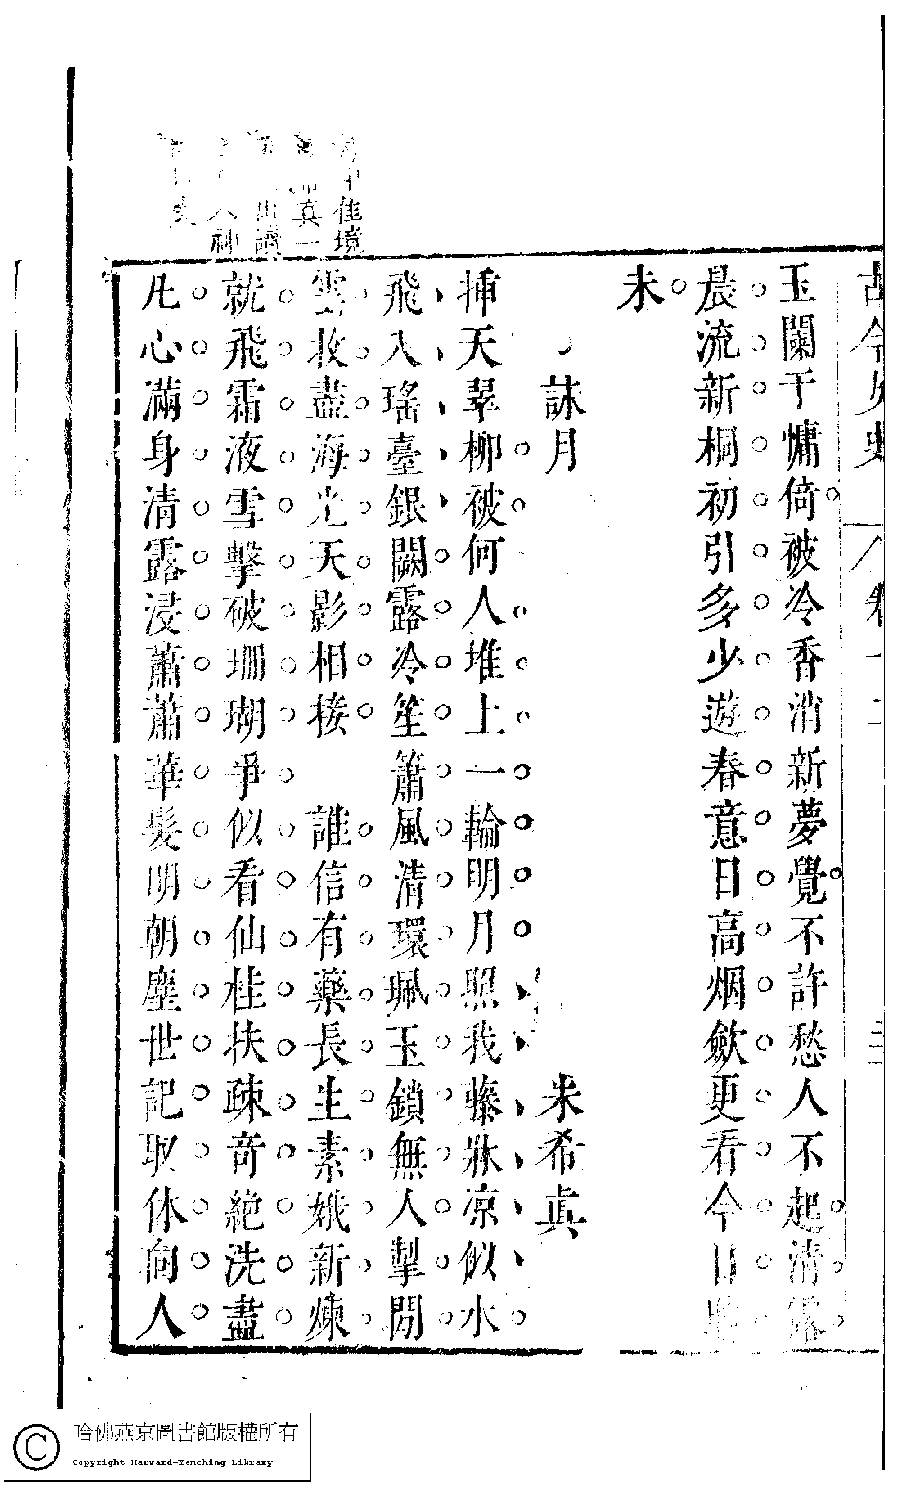 古今女史 卷十二
玉闌干慵倚被冷香消新夢覺不許愁人不起清露
晨流新桐初引多少遊春意日高烟歛更看今日晴
未
詠月 朱希真
揷天翠柳被何人堆上一輪明月照我藤牀凉似水
飛入瑤臺銀闕露冷笙簫風清環珮玉鎖無人掣閒
雲收盡海光天影相接 誰信有藥長生素娥新煉
就飛霜液雪擊破珊瑚爭似看仙桂扶疎奇絶洗盡
凡心滿身清露浸蕭蕭華髮明朝塵世記取休向人
佳境
真一
哈佛燕京圖書館版權所有
Copyright Harvard-Yenching Library